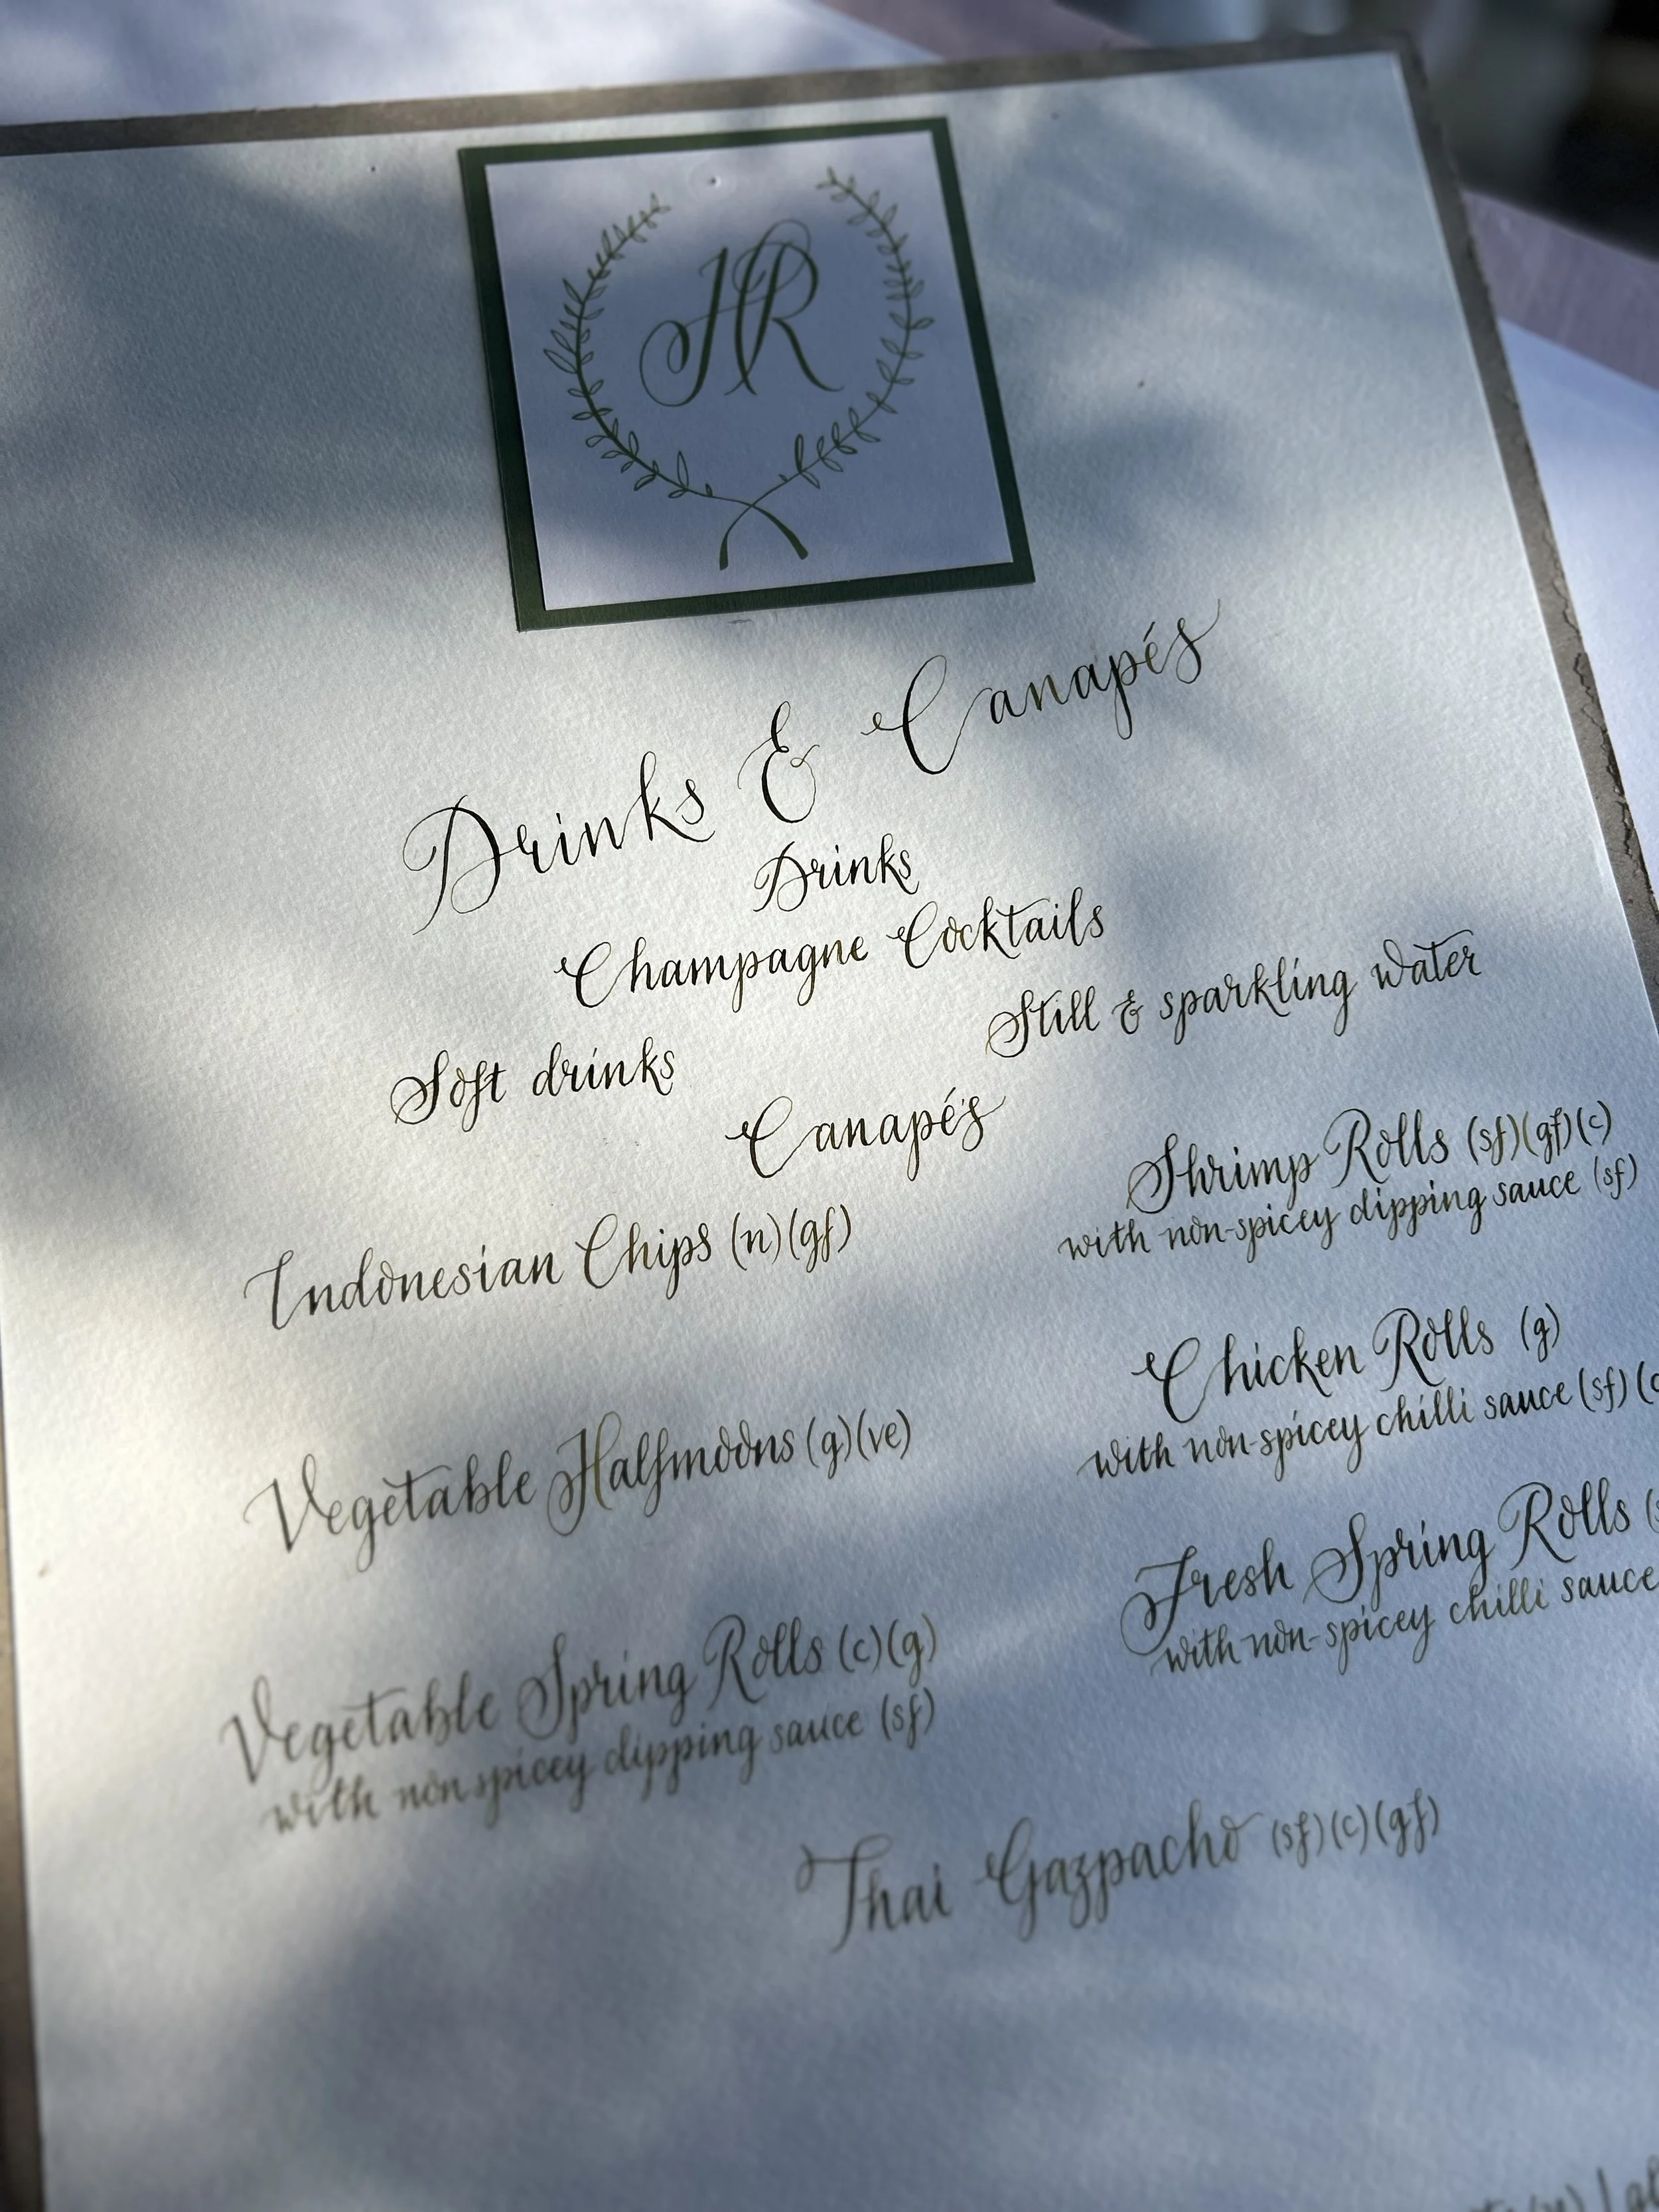 HR
Drinks & Canapés
Drinks
Champagne Cocktails
Soft drinks
Still & sparkling water
Canapés
Indonesian Chips (n)(gf)
Shrimp Rolls (sf)(gf)(c)
with non-spicey dipping sauce (sf)
Vegetable Halfmoons (g)(ve)
Chicken Rolls (g)
with non-spicey chilli sauce (sf)
Vegetable Spring Rolls (c)(g)
with nonspicey dipping sauce (sf)
Fresh Spring Rolls
with non-spicey chilli sauce
Thai Gazpacho (sf)(c)(gf)